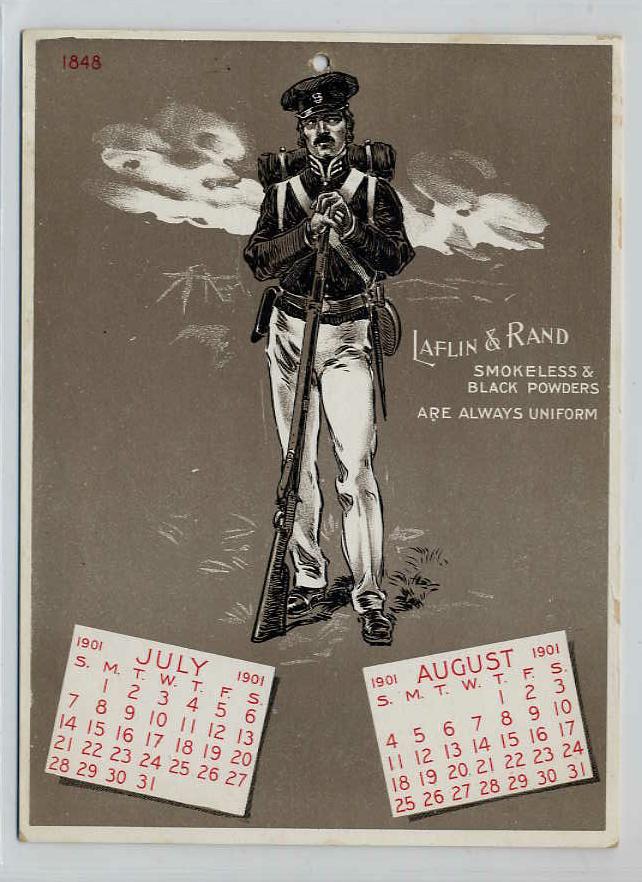 1848
S
LAFLIN & RAND
SMOKELESS &
BLACK POWDERS
ARE ALWAYS UNIFORM
1901 JULY 1901
S. M. T. W. T. F. S.
1 2 3 4 5 6
7 8 9 10 11 12 13
14 15 16 17 18 19 20
21 22 23 24 25 26 27
28 29 30 31
1901 AUGUST 1901
S. M. T. W. T. F. S.
1 2 3
4 5 6 7 8 9 10
11 12 13 14 15 16 17
18 19 20 21 22 23 24
25 26 27 28 29 30 31